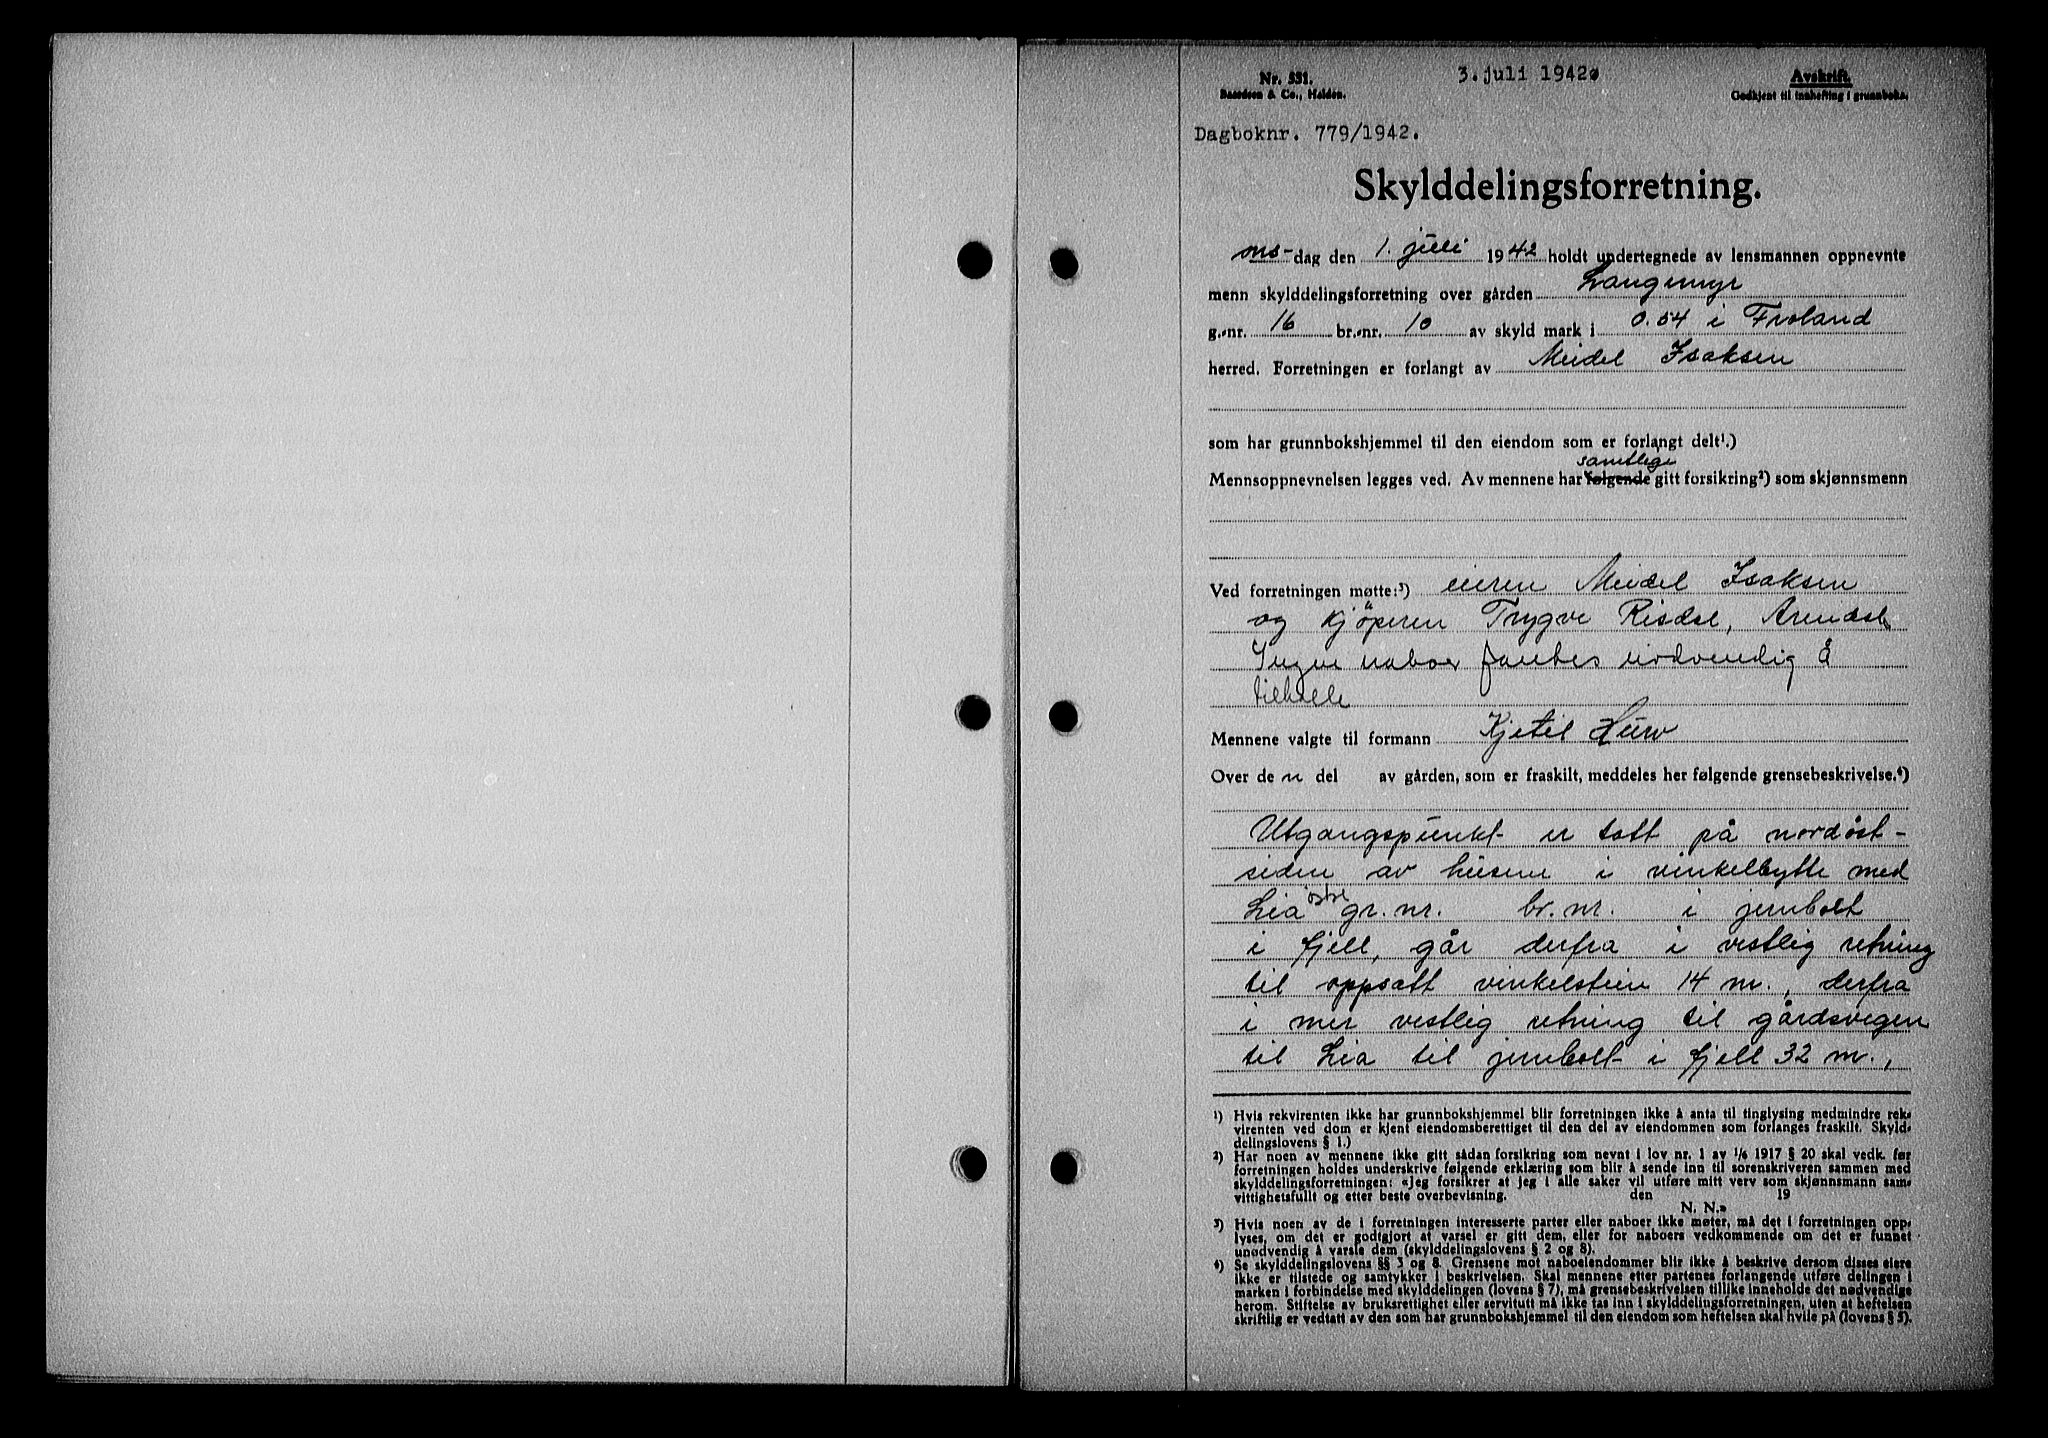 Nr. 531.
3. juli 1942.
Avskrift.
Baardsen & Co., Halden.
Godkjent til innhefting i grunnboka.
Dagboknr. 779/1942.
Skylddelingsforretning.
ons-dag den 1. juli 1942 holdt undertegnede av lensmannen oppnevnte
menn skylddelingsforretning over gården Langemyr
g.-nr. 16 br.-nr. 10 av skyld mark i 0.54 i Froland
herred. Forretningen er forlangt av Meidel Isaksen
som har grunnbokshjemmel til den eiendom som er forlangt delt¹.)
samtlige
Mennsoppnevnelsen legges ved. Av mennene har følgende gitt forsikring²) som skjønnsmenn
Ved forretningen møtte:³) eieren Meidel Isaksen
og kjöperen Trygve Risdal, Arendal.
Ingen naboer fantes nödvendig å
tilkalle
Mennene valgte til formann Kjetil Hurv
Over den del av gården, som er fraskilt, meddeles her følgende grensebeskrivelse.⁴)
Utgangspunkt er tatt på nordöst-
siden av husene i vinkelbytte med
Lia östre gr. nr. br. nr. i jernbolt
i fjell, går derfra i vestlig retning
til oppsatt vinkelstein 14 m., derfra
i mer vestlig retning til gårdsvegen
til Lia til jernbolt i fjell 32 m.,
¹) Hvis rekvirenten ikke har grunnbokshjemmel blir forretningen ikke å anta til tinglysing medmindre rek-
virenten ved dom er kjent eiendomsberettiget til den del av eiendommen som forlanges fraskilt. Skyld-
delingslovens § 1.)
²) Har noen av mennene ikke gitt sådan forsikring som nevnt i lov nr. 1 av 1/6 1917 § 20 skal vedk. før
forretningen holdes underskrive følgende erklæring som blir å sende inn til sorenskriveren sammen med
skylddelingsforretningen: «Jeg forsikrer at jeg i alle saker vil utføre mitt verv som skjønnsmann sam-
vittighetsfullt og etter beste overbevisning. den 19
N. N.»
³) Hvis noen av de i forretningen interesserte parter eller naboer ikke møter, må det i forretningen opp-
lyses, om det er godtgjort at varsel er gitt dem, eller for naboers vedkommende om det er funnet
unødvendig å varsle dem (skylddelingslovens § 2 og 8).
⁴) Se skylddelingslovens §§ 3 og 8. Grensene mot naboeiendommer blir ikke å beskrive dersom disses eiere
ikke er tilstede og samtykker i beskrivelsen. Skal mennene etter partenes forlangende utføre delingen i
marken i forbindelse med skylddelingen (lovens § 7), må grensebeskrivelsen tillike inneholde det nødvendige
herom. Stiftelse av bruksrettighet eller servitutt må ikke tas inn i skylddelingsforretningen, uten at heftelsen
skriftlig er vedtatt av den som har grunnbokshjemmel til den eiendom som heftelsen skal hvile på (lovens § 5).